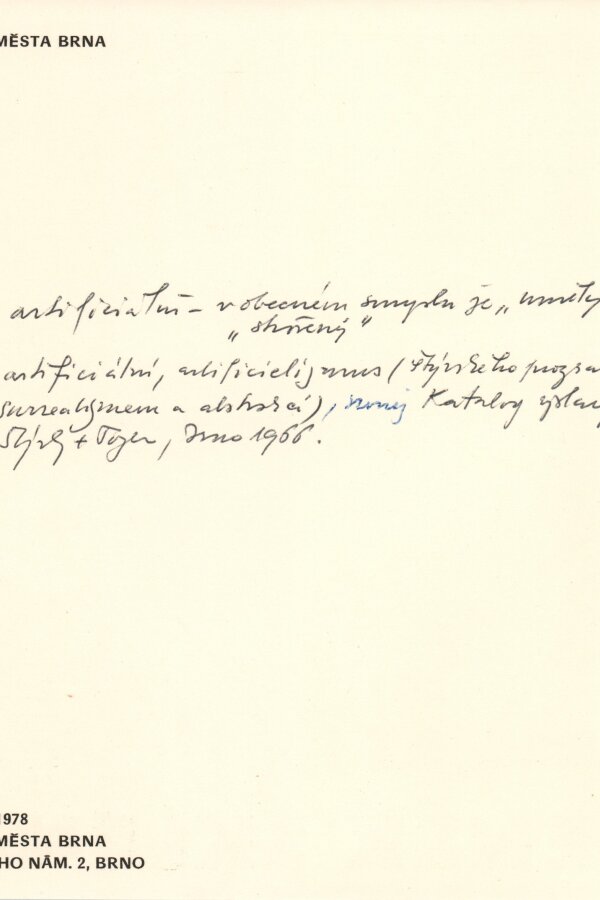 MĚSTA BRNA
artificiální – v obecném smyslu je „umělý
„stvořený“
artificiální, artificielismus (Štýrského progra
surrealismem a abstrakcí), srovnej Katalog výstavy
Štýrský + Toyen, Brno 1966.
1978
MĚSTA BRNA
HO NÁM. 2, BRNO